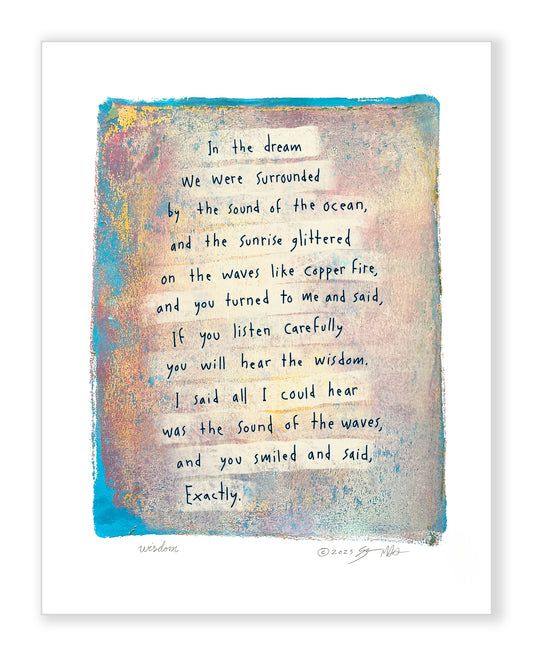 In the dream
We were surrounded
by the sound of the ocean,
and the sunrise glittered
on the waves like copper fire,
and you turned to me and said,
If you listen carefully
you will hear the wisdom.
I said all I could hear
was the sound of the waves,
and you smiled and said,
Exactly.
wisdom
© 2023